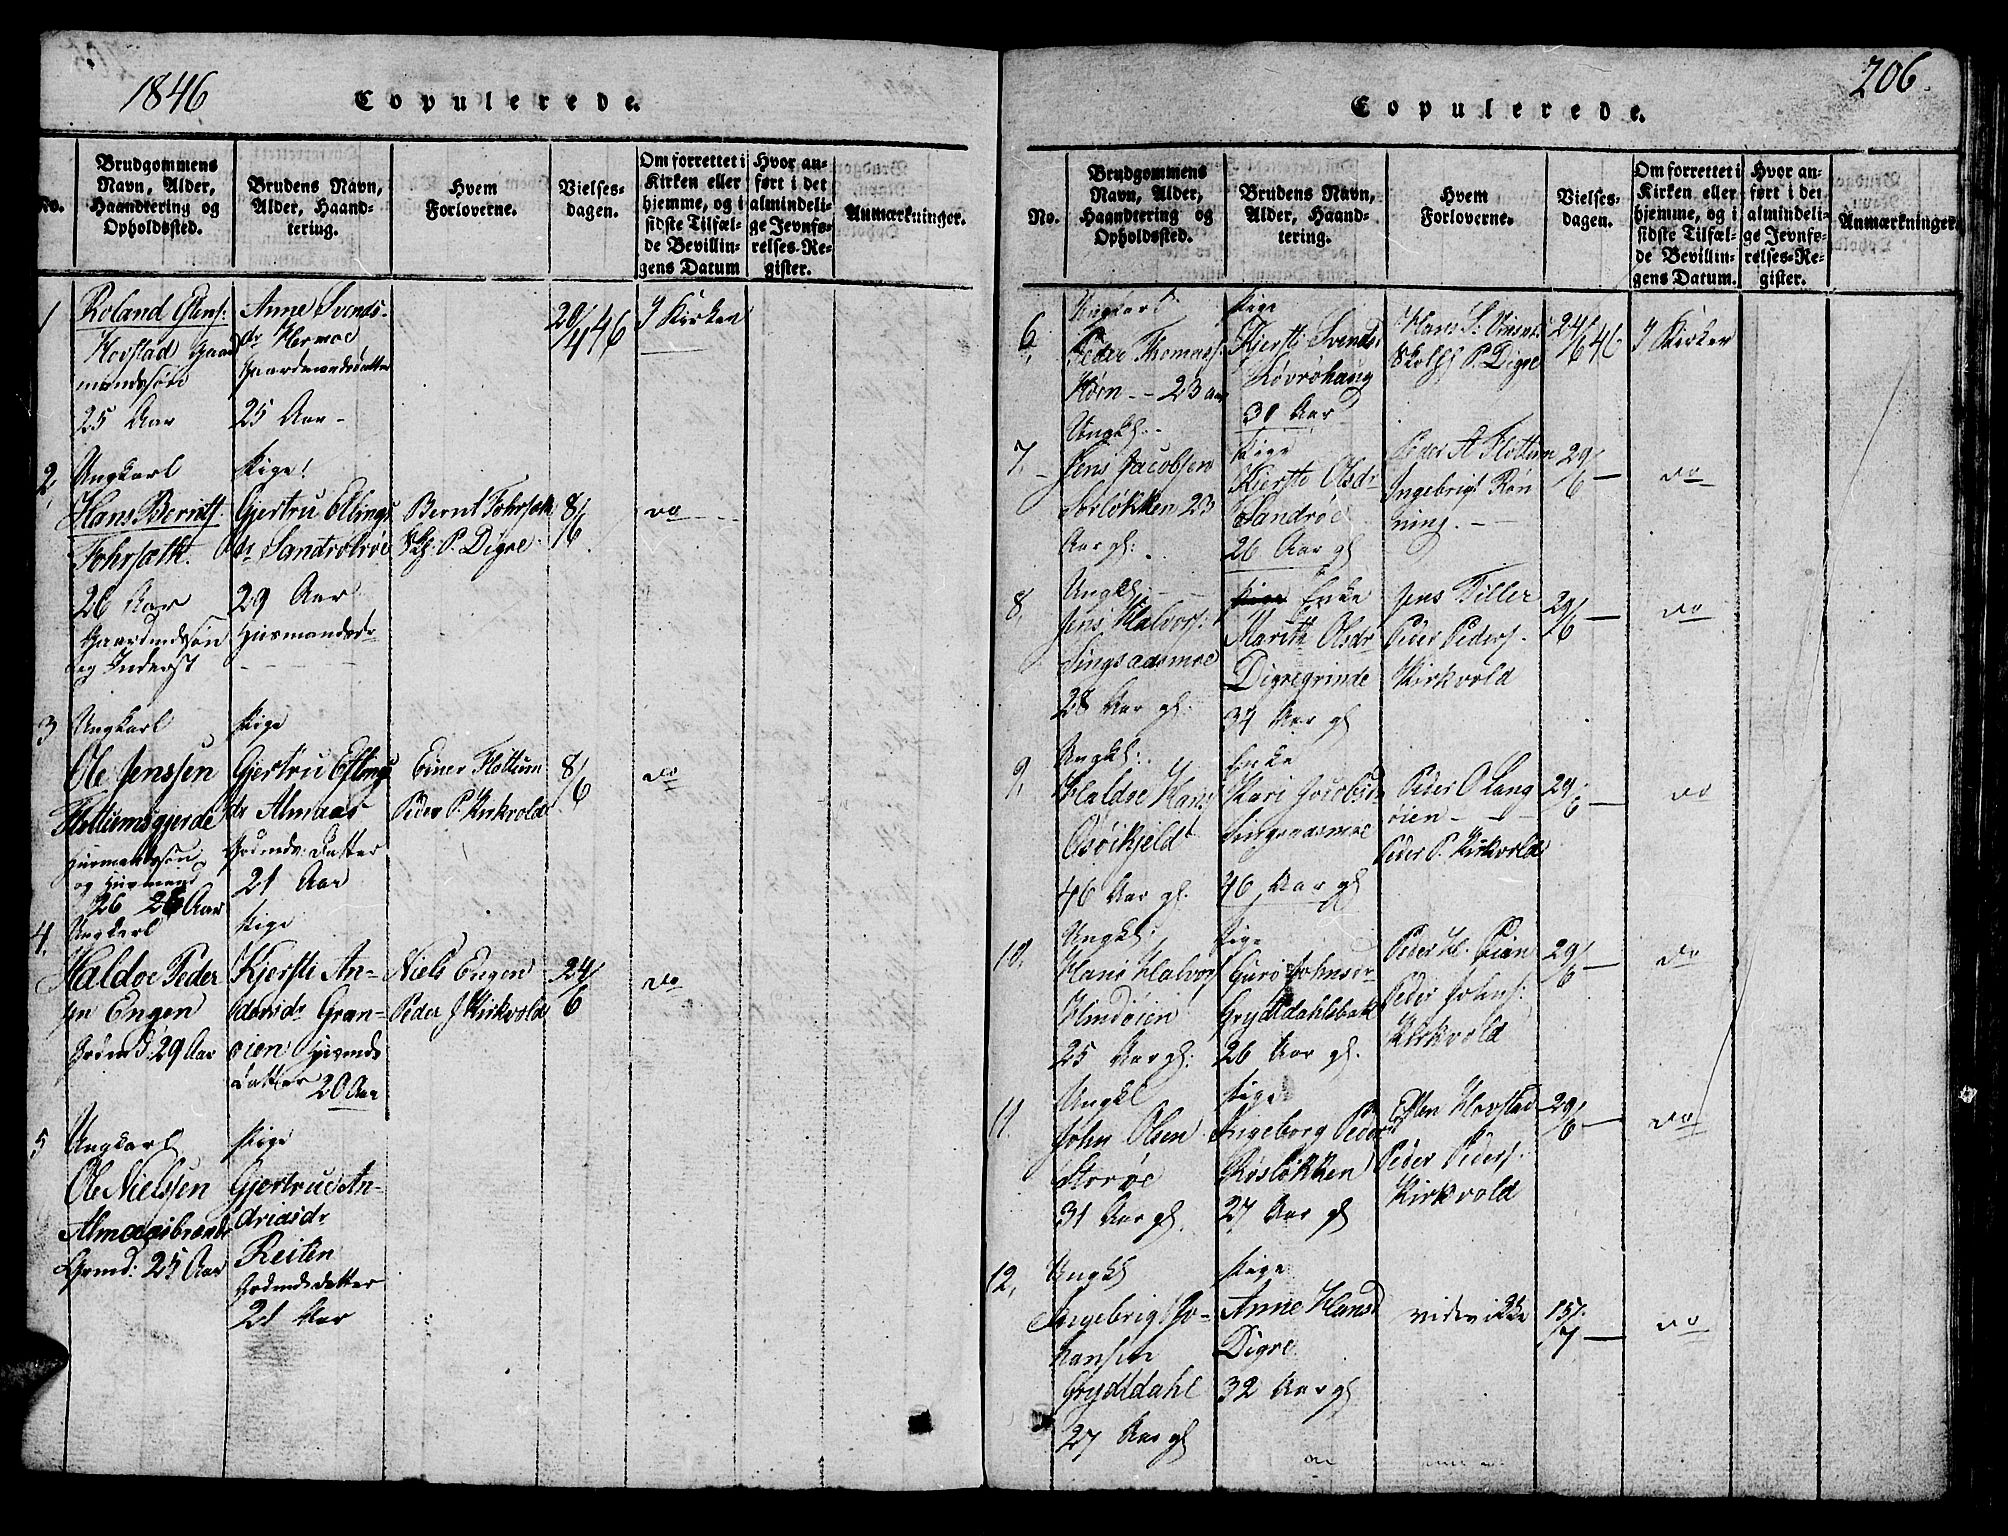 1846
Copulerede.
No.
Brudgommens
Navn, Alder,
Haandtering og
Opholdssted.
Brudens Navn,
Alder, Haand-
tering.
Hvem
Forloverne.
Vielses-
dagen.
Om forrettet i
Kirken eller
hjemme, og i
sidste Tilfæl-
de Bevillin-
gens Datum
Hvor an-
ført i det
almindeli-
ge Jevnfø-
relses-Re-
gister.
Anmærkninger.
1
Roland Estens:
Hovstad Gaard
mandssøn
25 Aar
Anne Svends
dr Hermoe
Gaardmandsdatter
25 Aar
20/4 46
I Kirken
2
Ungkarl
Hans Berntss
Fohrsæth.
26 Aar
Gaardmdssøn
og Inderst
Pige!
Gjertru Ellings
dr Sandrobroe
29 Aar
Husmandsdr
Bernt Fohrsæth
P. Digre
8/6
do
3
Ungkarl
Ole Jenssen
Flottumsgjerde
Husmandssøn
og Husmand
26 26 Aar
Pige
Gjertru Estens
dr Almaas
Gdmds: Datter
21 Aar
Einer Flottum
Peder P. Kirkvold
8/6
do
4.
Ungkarl
Haldoe Peder
sen Engen
Grdmd: 29 Aar
Pige
Kjersti An-
dersdr Gran-
oien Husmds
Datter 20 Aar
Niels Engen
Peder J Kirkvold
24/6
do
5
Ungkarl
Ole Nielssen
Almaasbrænde
Grmd: 25 Aar
Pige
Gjertrue An-
driasdr
Reiten
Grdmdsdatter
21 Aar
206.
Copulerede.
No.
Brudgommens
Navn, Alder,
Haandtering og
Opholdssted.
Brudens Navn,
Alder, Haand-
tering.
Hvem
Forloverne.
Vielses-
dagen.
Om forrettet i
Kirken eller
hjemme, og i
sidste Tilfæl-
de Bevillin-
gens Datum.
Hvor an-
ført i det
almindeli-
ge Jevnfø-
relses-Re-
gister.
Anmærkninger.
6
Ungkarl
Peder Thomass:
Horn - - 23 aar
Pige
Kjersti Svendsd
Løvrøhaug
30 Aar
Hans S:
P. Digre
24/6 46
I Kirken
7.
Ungkl:
Jens Jacobsen
Sorløkken 23
Aar gl:
Pige
Kjersti Olsdr
Sandroe
26 Aar gl
Peder A Flottum
Ingebrigt Røn
ning.
29/6
do
8.
Ungkl:
Jens Halvors:
Singsaasmoe
28 Aar gl:
Pige Enke
Marith Olsdr
Digregrinde
34 Aar gl
Jens Tiller
Peder Peders.
Kirkvold
29/6
do
9.
Ungkl:
Haldoe Hans
Osøikjeldt
46 Aar gl.
Enke
Kari Jacobsdr
Singsaasmoe
46 Aar gl
Peder O Lang
øien
Peder P. Kirkvold
29/6
do
10.
Ungkl:
Hans Halvors
Hindøien
25 Aar gl:
Pige
Guro Johnsdr
Gryttdahlsbak
26 Aar gl.
Peder H. Øien
Peder Johns:
Kirkvold
29/6
do
11.
Ungkl
John Olsen
Storøe
31 Aar gl.
Pige
Ingeborg Peders
Røsløkken
27 Aar gl
Esten Hovstad
Peder Peders.
Kirkvold
29/6
do
12.
Ungkl
Ingebrigt Jo-
hansen
Gryttdahl
27 Aar gl
Pige
Anne Hansd
Digre
32 Aar gl
vides ikke
15/7
do